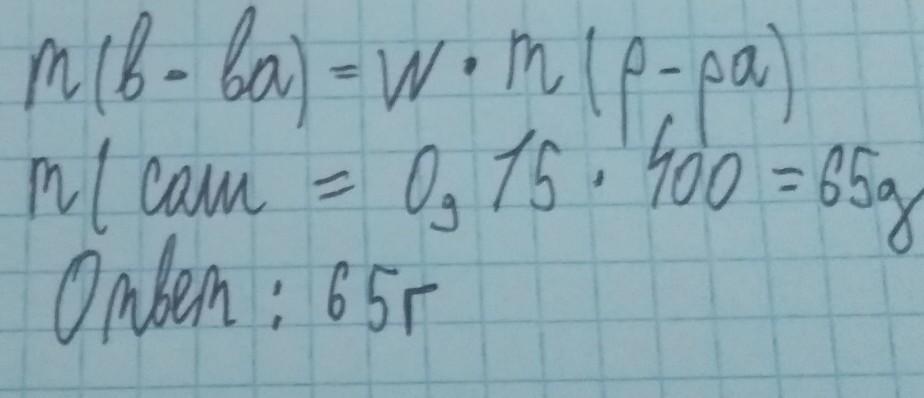 m(в-ва) = W · m(р-ра)
m( сам = 0,15 · 400 = 65g
Ответ: 65г